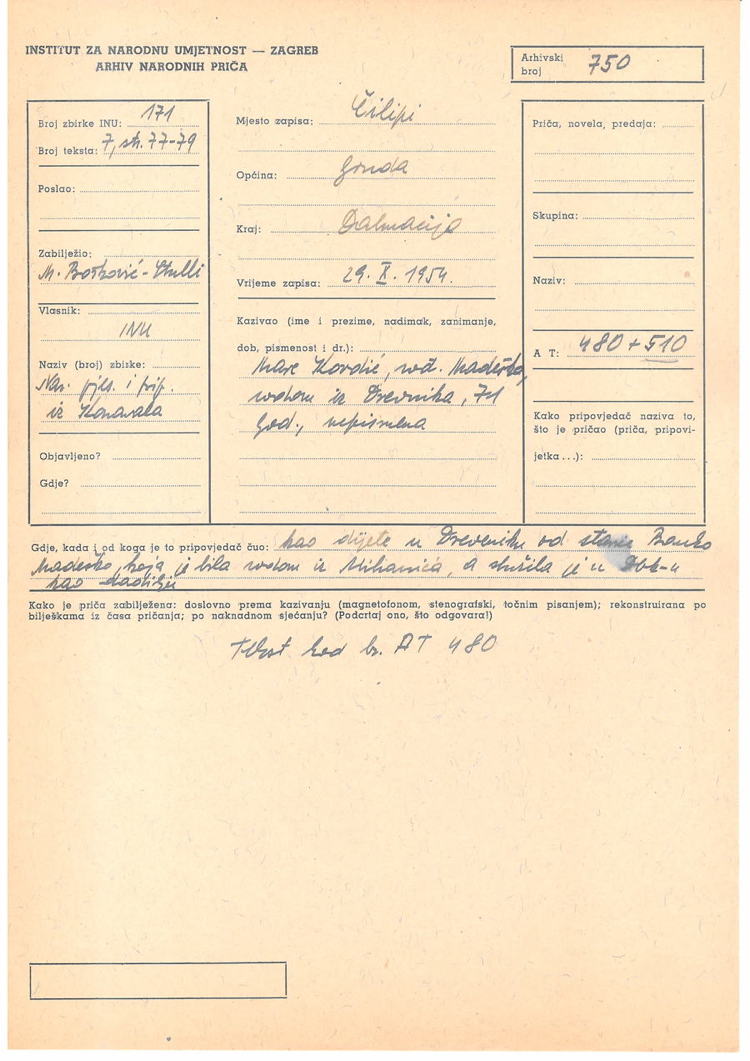 INSTITUT ZA NARODNU UMJETNOST — ZAGREB
ARHIV NARODNIH PRIČA
Arhivski
broj 750
Broj zbirke INU: 171
Broj teksta: 7, str. 77-79
Poslao:
Zabilježio:
M. Bošković-Stulli
Vlasnik:
INU
Naziv (broj) zbirke:
Nar. pjes. i prip.
iz Konavala
Objavljeno?
Gdje?
Mjesto zapisa: Čilipi
Općina: Gruda
Kraj: Dalmacija
Vrijeme zapisa: 29. X. 1954.
Kazivao (ime i prezime, nadimak, zanimanje,
dob, pismenost i dr.):
Mare Kordić, rođ. Madeško,
rodom iz Drvenika, 71
god., nepismena
Priča, novela, predaja:
Skupina:
Naziv:
A T: 480 + 510
Kako pripovjedač naziva to,
što je pričao (priča, pripovi-
jetka...):
Gdje, kada i od koga je to pripovjedač čuo: kao dijete u od stare
Madeško, koja je bila rodom iz Mihanića, a služila je u Dbk-u
kao dadilja
Kako je priča zabilježena: doslovno prema kazivanju (magnetofonom, stenografski, točnim pisanjem); rekonstruirana po
bilješkama iz časa pričanja; po naknadnom sjećanju? (Podcrtaj ono, što odgovara!)
Tekst kod br. AT 480